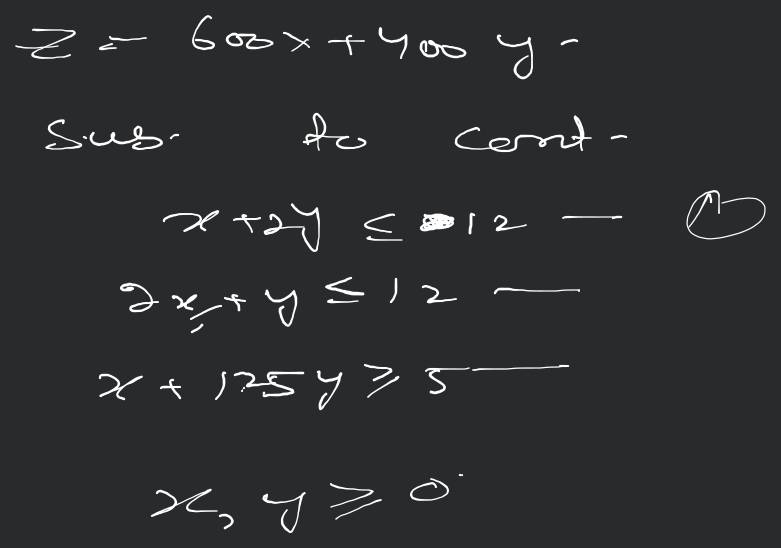 Z = 600x + 400 y -
Sub. to const -
x + 2y ≤ 12 — 1
2x + y ≤ 12 —
x + 1.25 y ≥ 5 —
x, y ≥ 0